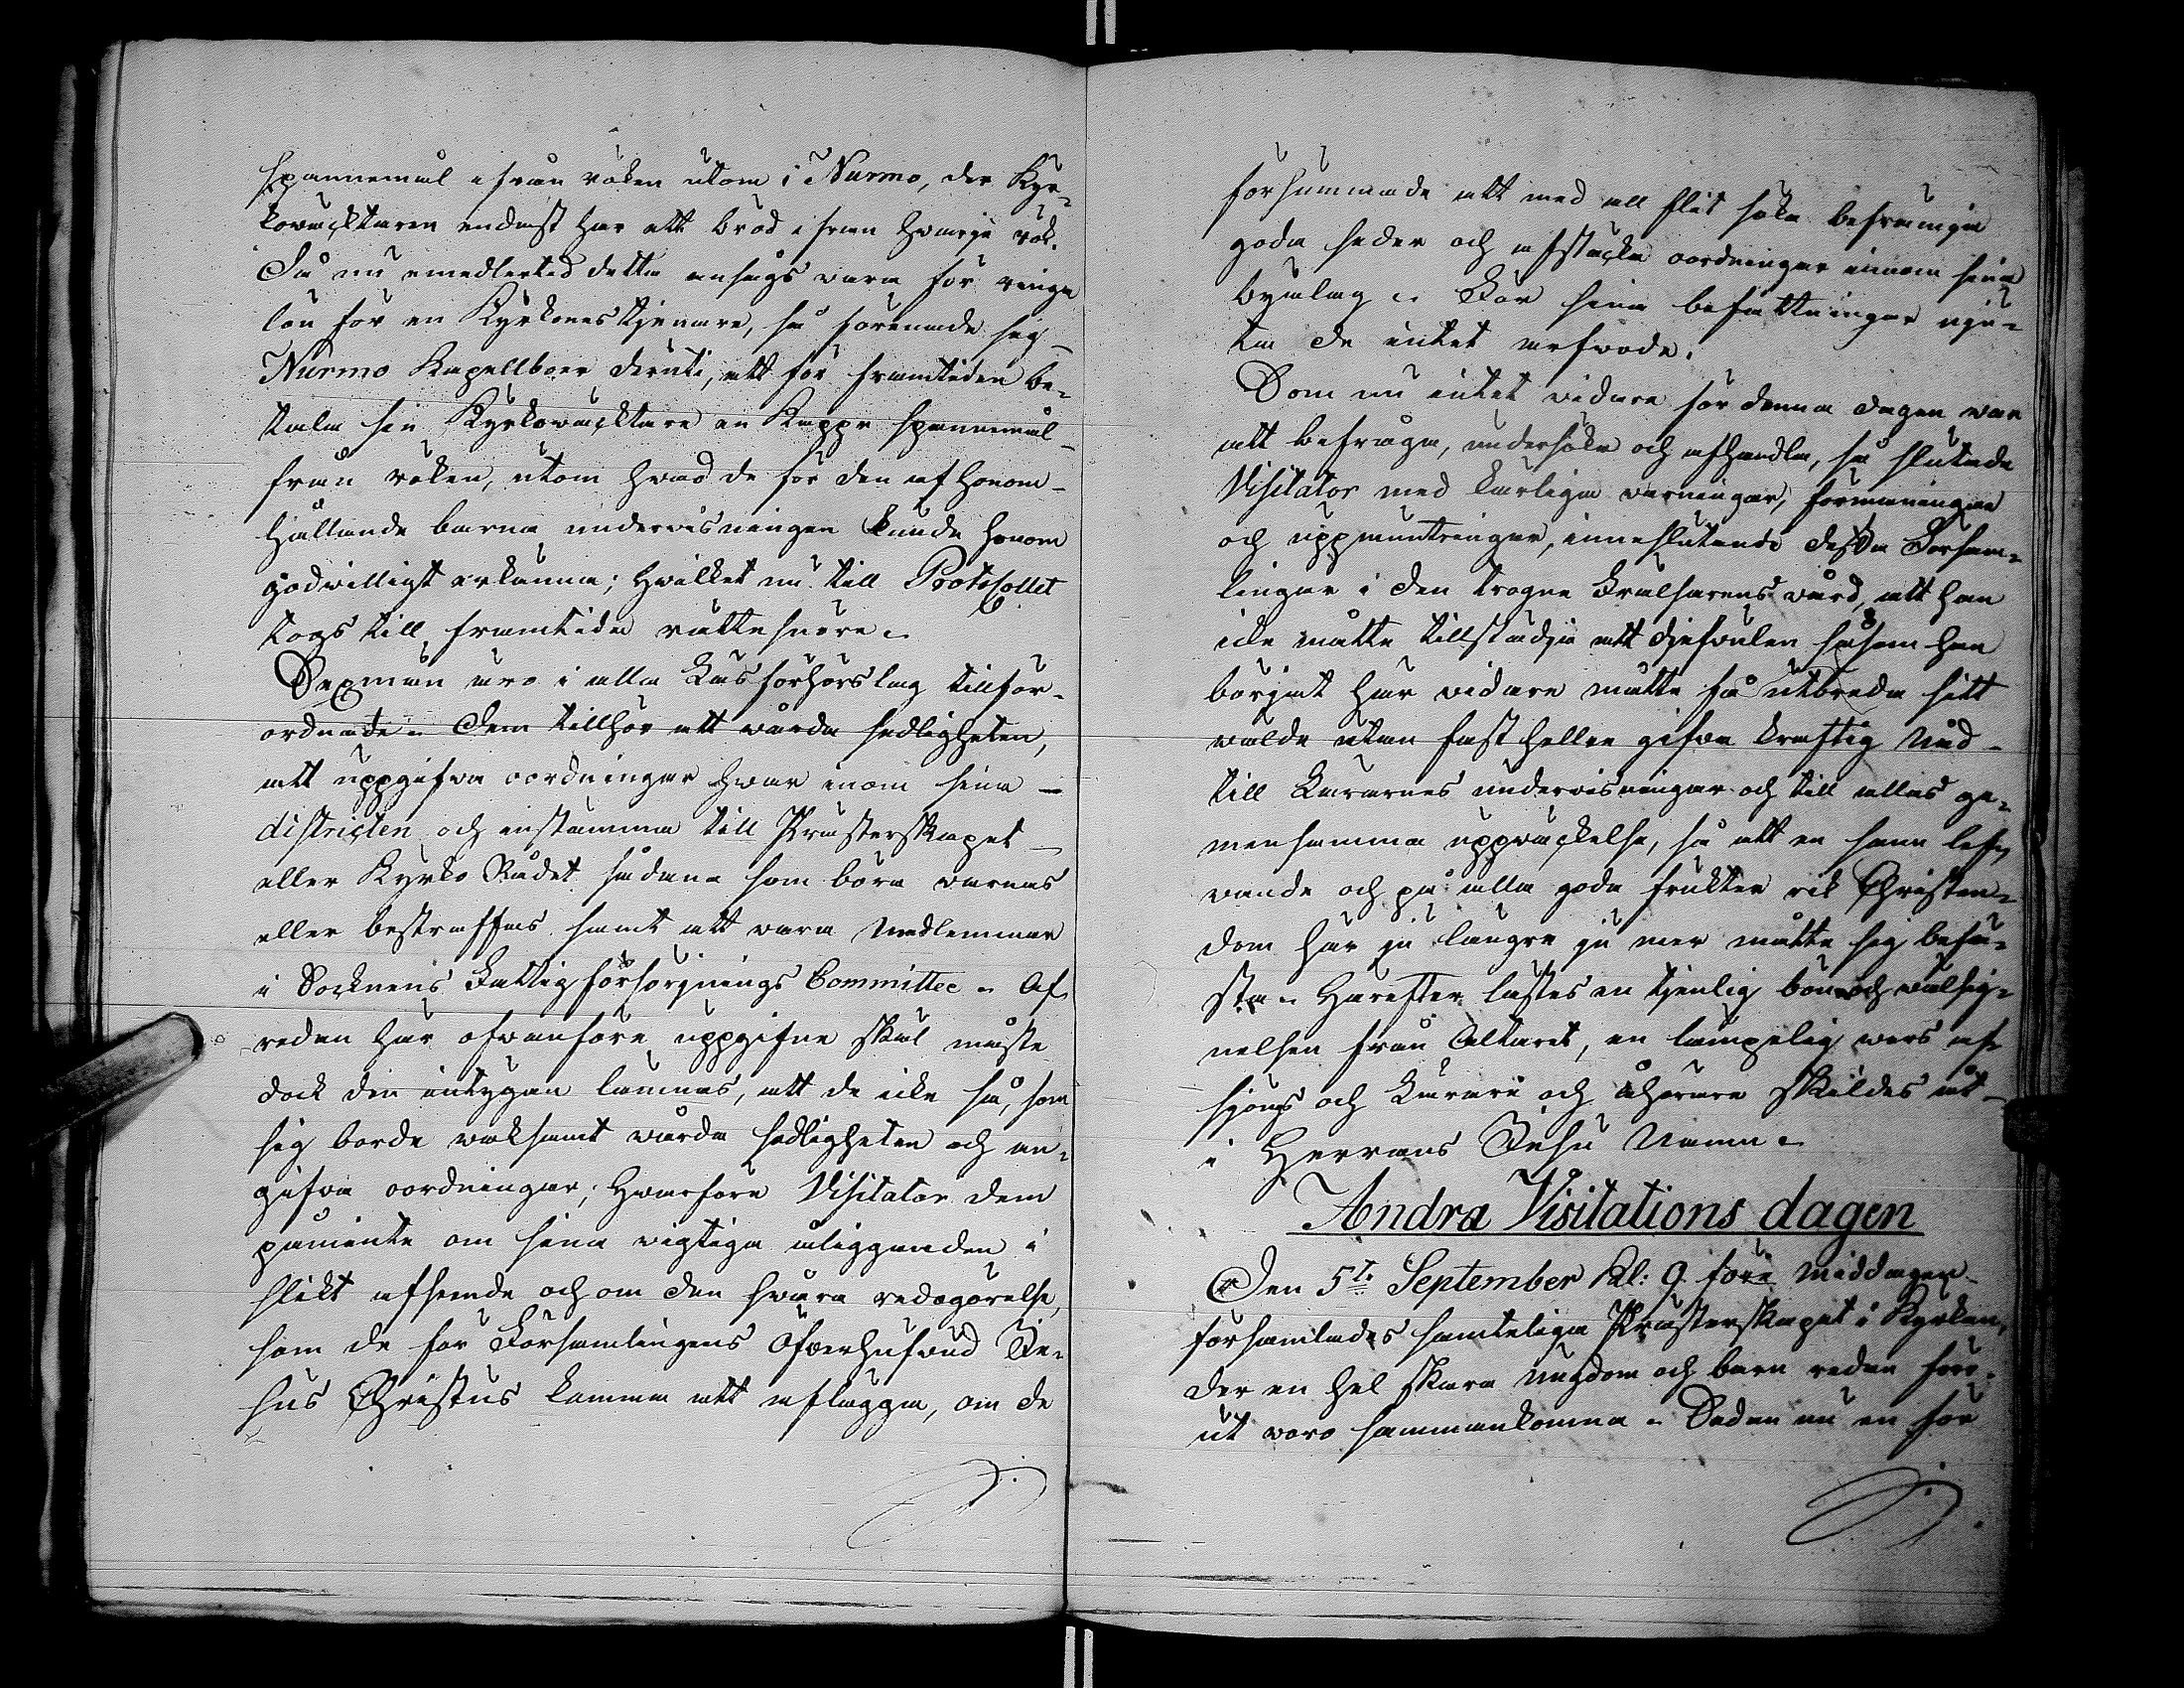 spannemål ifrån röken utom i Nurmo, der Kyr-
kovacktaren endast har ett bröd ifrån hvarje rök.
Då nu emedlertid detta ansågs vara för ringa
lön för en Kyrkones tjenare, så förenade sig
Nurmo Kapellboer deruti, att för framtiden be-
tala sin Kyrkovacktare en Kappe spannemål
från röken, utom hvad de för den af honom
hållande barna undervisningen kunde honom
godvilligt erkänna; hvilket nu till Protocollet
togs till framtida rättesnöre.
Sexmän äro i alla Läsförhörslag tillför-
ordnade. Dem tillhör att vårda sedligheten,
att uppgifva oordningar hvar inom sina
districten och instämma till Prästerskapet
eller Kyrko Rådet sådana som böra varnas
eller bestraffas samt att vara medlemmar
i Socknens Fattigförsörjnings Committee. Af
redan här ofvanföre uppgifne skäl måste
dock den intygan lämnas, att de icke så, som
sig borde vaksamt vårda sedligheten och an-
gifva oordningar; hvarföre Visitator dem
påminte om sina vigtiga åligganden i
slikt afseende och om den svåra redogörelse,
som de för Församlingens Öfverhufvud Je-
sus Christus komma att aflägga, om de
försummade att med all flit söka befrämja
goda seder och afstäcka oordningar innom sina
byalag. För sina befattningar nju-
ta de intet arfvode.
Som nu intet vidare för denna dagen var
att befråga, undersöka och afhandla, så slutade
Visitator med kärliga varningar, förmaningar
och uppmuntringar, inneslutande dessa Försam-
lingar i den trogne Frälsarens vård, att han
icke måtte tillstädja att djefvulen såsom han
börjat här vidare måtte få utbreda sitt
välde utan fast heller gifva kraftig nåd
till Lärarnes undervisningar och till allas ge-
mensamma uppväckelse, så att en sann lef-
vande och på alla goda frukter rik Christen-
dom här ju längre ju mer måtte sig befä-
sta. Härefter lästes en tjenlig bön och välsig-
nelsen från Altaret, en lämpelig vers af-
sjöngs och Lärare och åhörare skildes åt
i Herrans Jesu Namn.
Andra Visitations dagen
Den 5te September Kl: 9. före middagen
församlades samteliga Prästerskapet i Kyrkan,
der en hel skara ungdom och barn redan för-
ut voro sammankomna. Sedan nu en för